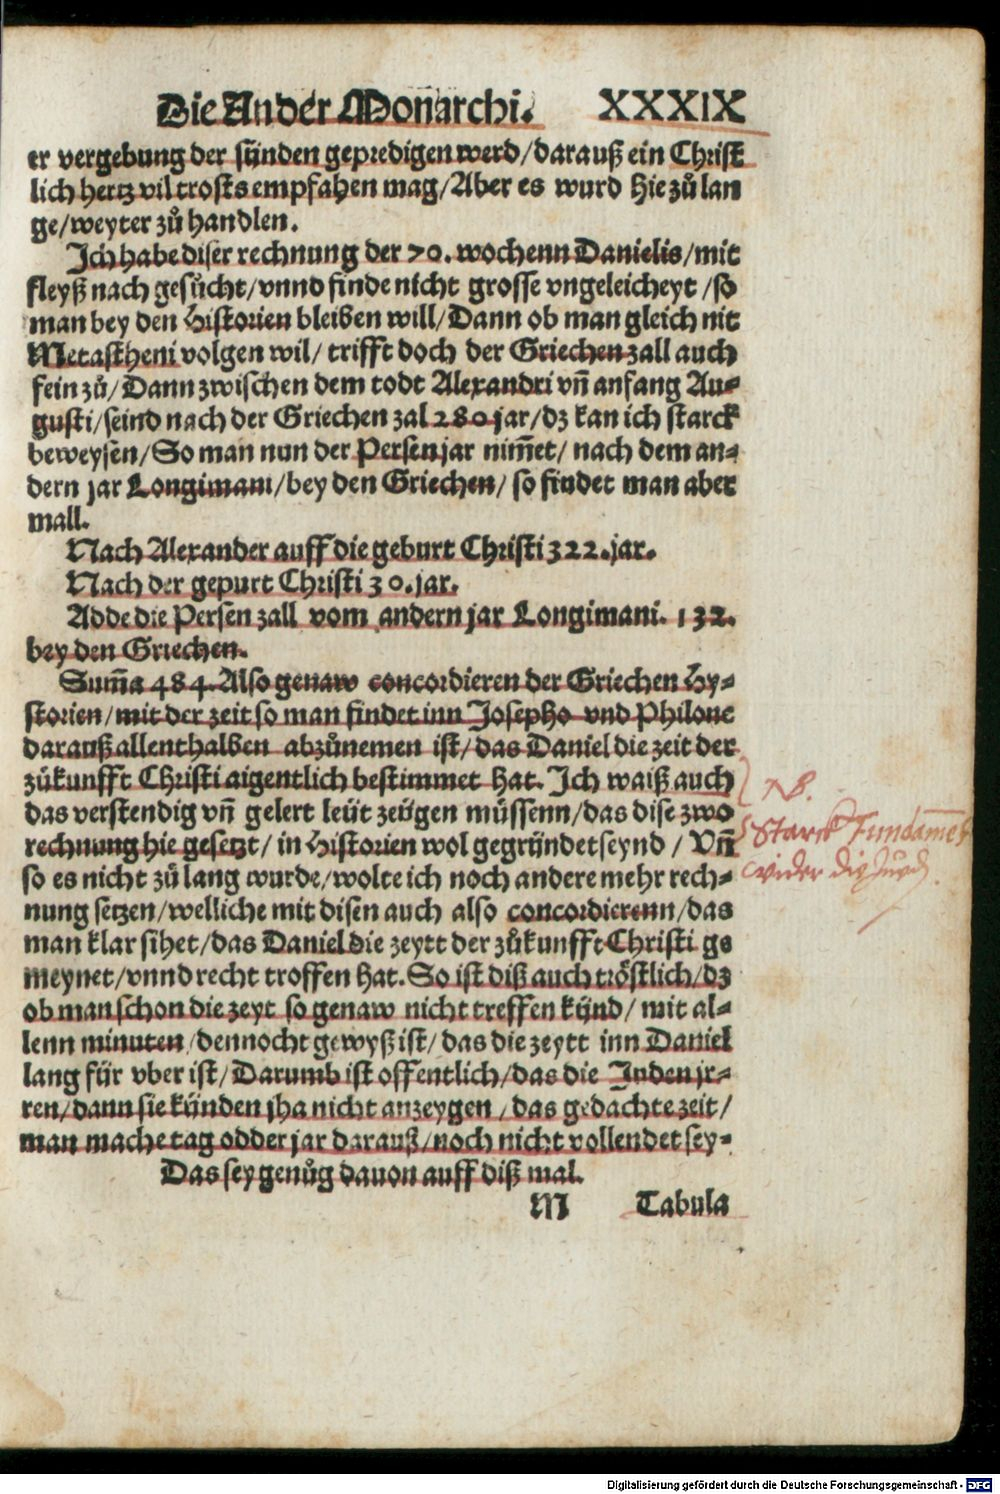 Die Ander Monarchi. XXXIX
er vergebung der sünden geprediget werd/darauß ein Christ
lich hertz vil trosts empfahen mag/Aber es wurd hie zů lan
ge/weyter zů handlen.
Ich habe diser rechnung der 70. wochenn Danielis/mit
fleyß nach gesůcht/vnnd finde nicht grosse vngeleicheyt/so
man bey den Historien bleiben will/Dann ob man gleich nit
Metastheni volgen wil/trifft doch der Griechen zall auch
fein zů/Dann zwischen dem todt Alexandri vñ anfang Au-
gusti/seind nach der Griechen zal 280 jar/dz kan ich starck
beweysen/So man nun der Persen jar nim̃et/nach dem an-
dern jar Longimani/bey den Griechen/so findet man aber
mall.
Nach Alexander auff die geburt Christi 322. jar.
Nach der gepurt Christi 30. jar.
Adde die Persen zall vom andern jar Longimani. 132.
bey den Griechen.
Sum̃a 484. Also genaw concordieren der Griechen Hy-
storien/mit der zeit so man findet inn Josepho vnd Philone
darauß allenthalben abzůnemen ist/das Daniel die zeit der
zůkunfft Christi aigentlich bestimmet hat. Ich waiß auch
das verstendig vñ gelert leüt zeügen müssenn/das dise zwo
rechnung hie gesetzt/in Historien wol gegründet seynd/Vñ
so es nicht zů lang wurde/wolte ich noch andere mehr rech-
nung setzen/welliche mit disen auch also concordierenn/das
man klar sihet/das Daniel die zeytt der zůkunfft Christi ge
meynet/vnnd recht troffen hat. So ist diß auch tröstlich/dz
ob man schon die zeyt so genaw nicht treffen künd/mit al-
lenn minuten/dennocht gewyß ist/das die zeytt inn Daniel
lang für vber ist/Darumb ist offentlich/das die Juden jr-
ren/dann sie künden jha nicht anzeygen/das gedachte zeit/
man mache tag odder jar darauß/noch nicht vollendet sey-
Das sey genůg dauon auff diß mal.
M Tabula
NB.
Starck Fundam̃et
wider die Jud
Digitalisierung gefördert durch die Deutsche Forschungsgemeinschaft - DFG